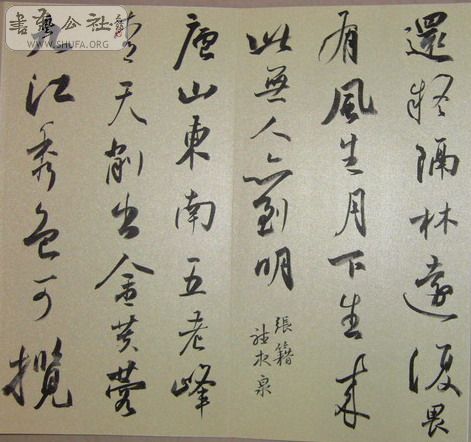 還疑隔林遠復畏
有風生月下長來
此無人亦到明
張籍
聽夜泉
廬山東南五老峰
青天削出金芙蓉
九江秀色可攬
書藝公社
WWW.SHUFA.ORG